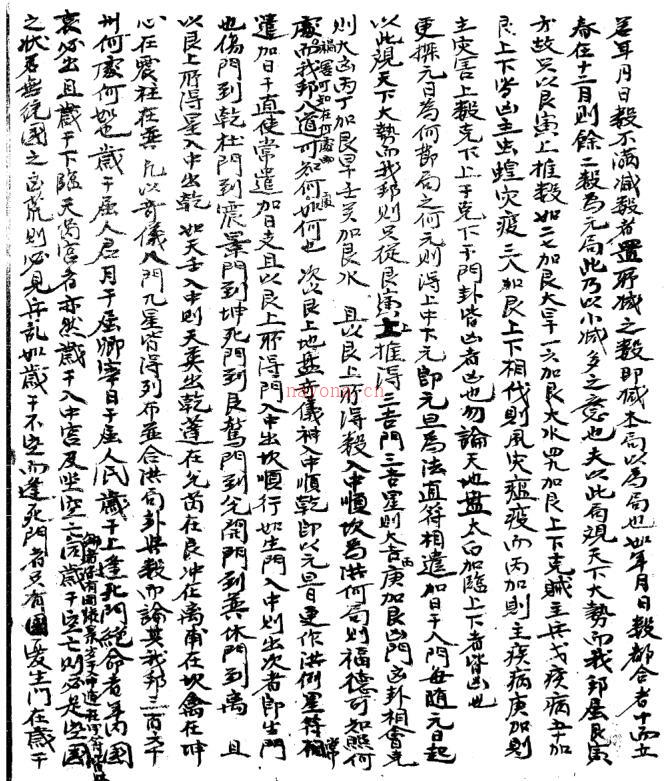 若年月日数不滿減數者置所減之數即減本局以為局也如年月日數都合者十而立
春在十二月則餘二數為元局此乃以小減多之意也夫以此局觀天下大勢而我邦屬艮寅
方故只以艮寅上推數如二七加艮大旱一六加艮大水四九加艮上下克賊主兵戈疾病五十加
艮上下皆凶主虫蝗灾疫三八加艮上下相代則風灾瘟疫而丙加則主疾病庚加則
主灾害上數克下上干克下干門卦皆凶者凶也勿論天地盤太白加臨上下者皆凶也
更探元日為何節局之何元則得上中下元即元旦為法直符相遣加日干入門毎随元日起
以此観天下大勢而我邦則只從艮寅上推得三吉門三吉星則大吉庚丙加艮凶門凶卦相會克
則大凶丙丁加艮旱壬癸加艮水 且以艮上所得數入中順坎為洪何局則福德可知照何
處而我邦八道可知何如何也 次以艮上地盤奇儀神入中順乾即以元旦日更作洪例星符相
遣加日干直使常遣加日支且以艮上所得門入中出坎順行如生門入中則出次者即生門
也傷門到乾杜門到震景門到坤死門到艮驚門到兌開門到巽休門到离 且
以艮上所得星入中出乾 如天壬入中則天英出乾蓬在兌芮在艮冲在离甫在坎禽在坤
心在震柱在巽 凡以奇儀八門九星皆得到布並合洪局卦與數而論其我邦三百六十
州何處何如也 歲干屬人君月干屬卿宰日干屬人民歲干上逢死門絶命者年内國
哀必出且歲干下臨天芮宮者亦然歲干入中宮及坐空亡
之状君無從國之凶荒則必見兵乱如歲干不空而逢死門者只有國憂生門在歲干
nayona.cn